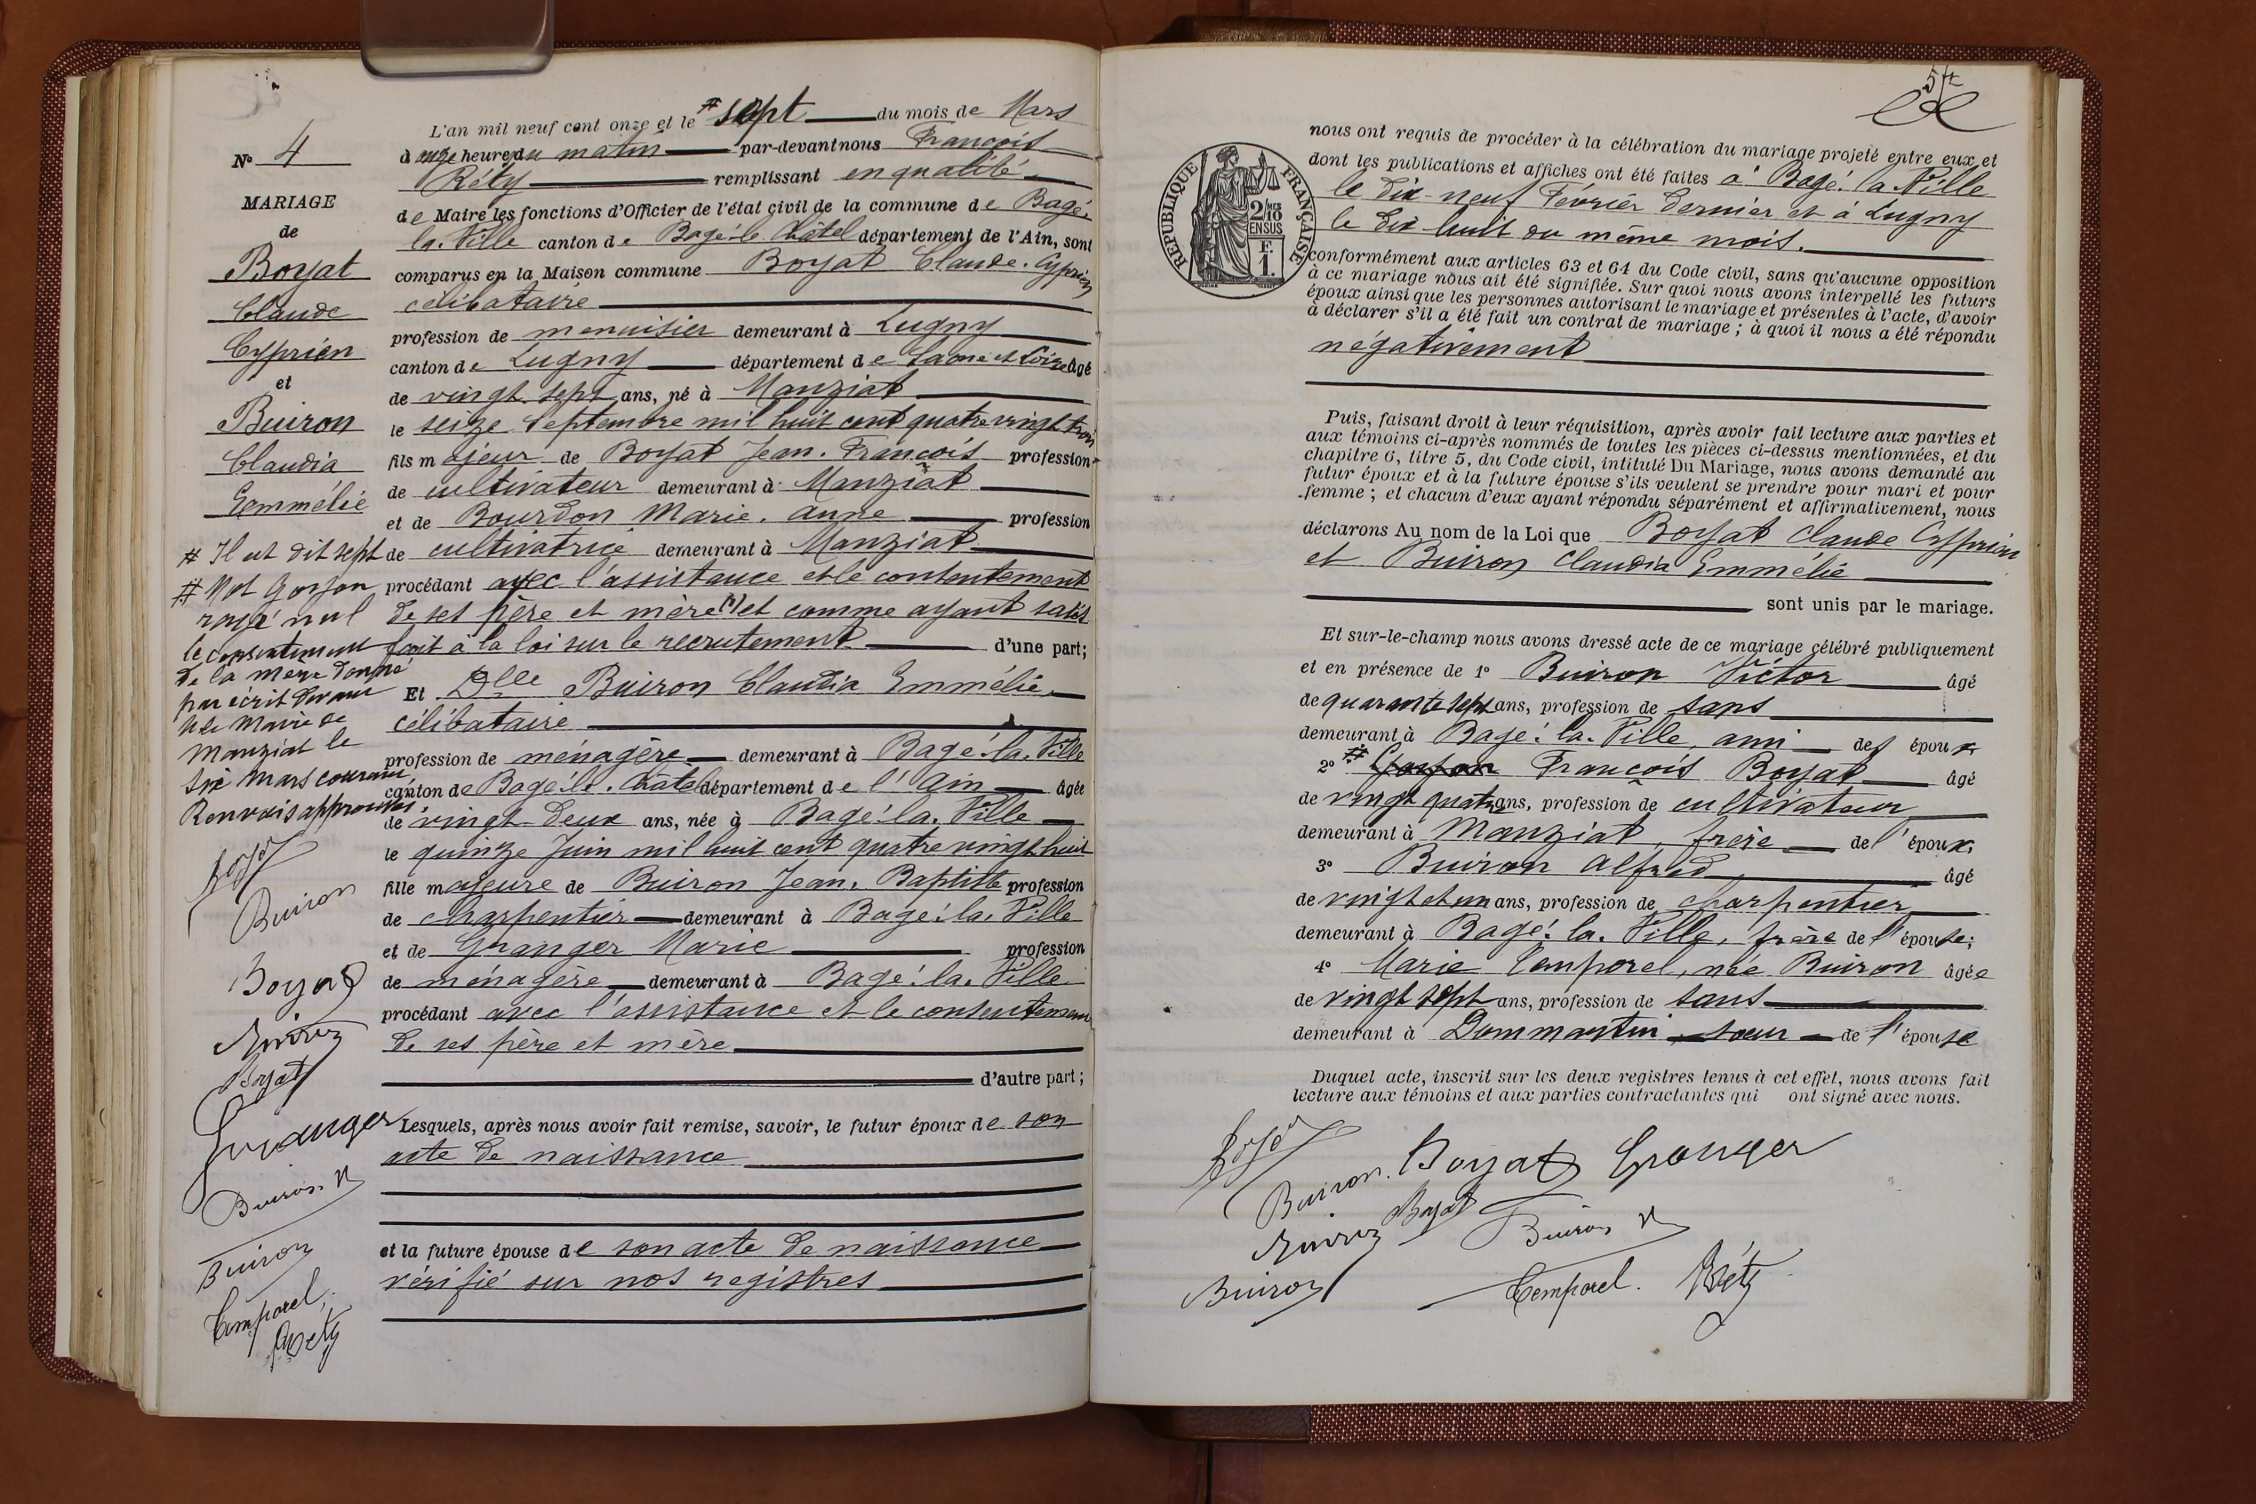 N° 4
MARIAGE
de
Boyat
Claude
Cyprien
et
Buiron
Claudia
Emmélie
# Il est dit sept
# Mot Goyon
rayé nul
le consentement
de la mère donné
par écrit devant
Mr le Maire de
Manziat le
six Mars courant
Renvois approuvés.
Buiron
Boyat
Boyat
Granger
Buiron V
Buiron
Temporel
Réty
L'an mil neuf cent onze et le # sept du mois de Mars
à onze heures du matin par-devant nous François
Réty remplissant en qualité
de Maire les fonctions d'Officier de l'état civil de la commune de Bagé-
la-Ville canton de Bagé-le-Châtel département de l'Ain, sont
comparus en la Maison commune Boyat Claude-Cyprien
célibataire
profession de menuisier demeurant à Lugny
canton de Lugny département de Saone et Loire âgé
de vingt-sept ans, né à Manziat
le seize Septembre mil huit cent quatre vingt trois
fils majeur de Boyat Jean-François profession
de cultivateur demeurant à Manziat
et de Bourdon Marie-Anne profession
de cultivatrice demeurant à Manziat
procédant avec l'assistance et le consentement
de ses père et mère (1) et comme ayant satis
fait à la loi sur le recrutement d'une part;
Et Dlle Buiron Claudia Emmélie
célibataire
profession de ménagère demeurant à Bagé-la-Ville
canton de Bagé-le-Châtel département de l'Ain âgée
de vingt-deux ans, née à Bagé-la-Ville
le quinze Juin mil huit cent quatre vingt huit
fille majeure de Buiron Jean-Baptiste profession
de charpentier demeurant à Bagé-la-Ville
et de Granger Marie profession
de ménagère demeurant à Bagé-la-Ville
procédant avec l'assistance et le consentement
de ses père et mère
d'autre part;
Lesquels, après nous avoir fait remise, savoir, le futur époux de son
acte de naissance
et la future épouse de son acte de naissance
vérifié sur nos registres
5
RÉPUBLIQUE FRANÇAISE
2/10 EN SUS
F.
1.
nous ont requis de procéder à la célébration du mariage projeté entre eux et
dont les publications et affiches ont été faites à Bagé-la-Ville
le dix-neuf Février dernier et à Lugny
le dix-huit du même mois.
conformément aux articles 63 et 64 du Code civil, sans qu'aucune opposition
à ce mariage nous ait été signifiée. Sur quoi nous avons interpellé les futurs
époux ainsi que les personnes autorisant le mariage et présentes à l'acte, d'avoir
à déclarer s'il a été fait un contrat de mariage; à quoi il nous a été répondu
négativement
Puis, faisant droit à leur réquisition, après avoir fait lecture aux parties et
aux témoins ci-après nommés de toutes les pièces ci-dessus mentionnées, et du
chapitre 6, titre 5, du Code civil, intitulé Du Mariage, nous avons demandé au
futur époux et à la future épouse s'ils veulent se prendre pour mari et pour
femme; et chacun d'eux ayant répondu séparément et affirmativement, nous
déclarons Au nom de la Loi que Boyat Claude Cyprien
et Buiron Claudia Emmélie
sont unis par le mariage.
Et sur-le-champ nous avons dressé acte de ce mariage célébré publiquement
et en présence de 1° Buiron Victor âgé
de quarante sept ans, profession de sans
demeurant à Bagé-la-Ville, ami des époux
2° # François Boyat âgé
de vingt quatre ans, profession de cultivateur
demeurant à Manziat, frère de l'époux;
3° Buiron Alfred âgé
de vingt et un ans, profession de charpentier
demeurant à Bagé-la-Ville, frère de l'épouse;
4° Marie Temporel, née Buiron âgée
de vingt sept ans, profession de sans
demeurant à Dommartin, soeur de l'épouse
Duquel acte, inscrit sur les deux registres tenus à cet effet, nous avons fait
lecture aux témoins et aux parties contractantes qui ont signé avec nous.
Buiron. Boyat Granger
Boyat
Buiron V
Buiron
Temporel. Réty